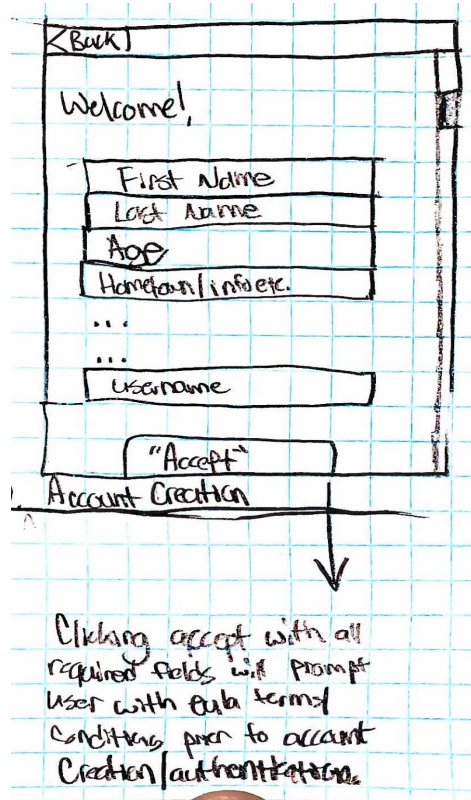 <Back
Welcome!
First Name
Last Name
Age
Hometown/info etc.
...
...
username
"Accept"
Account Creation
Clicking accept with all
required fields will prompt
user with eula terms/
conditions prior to account
Creation/authentication.